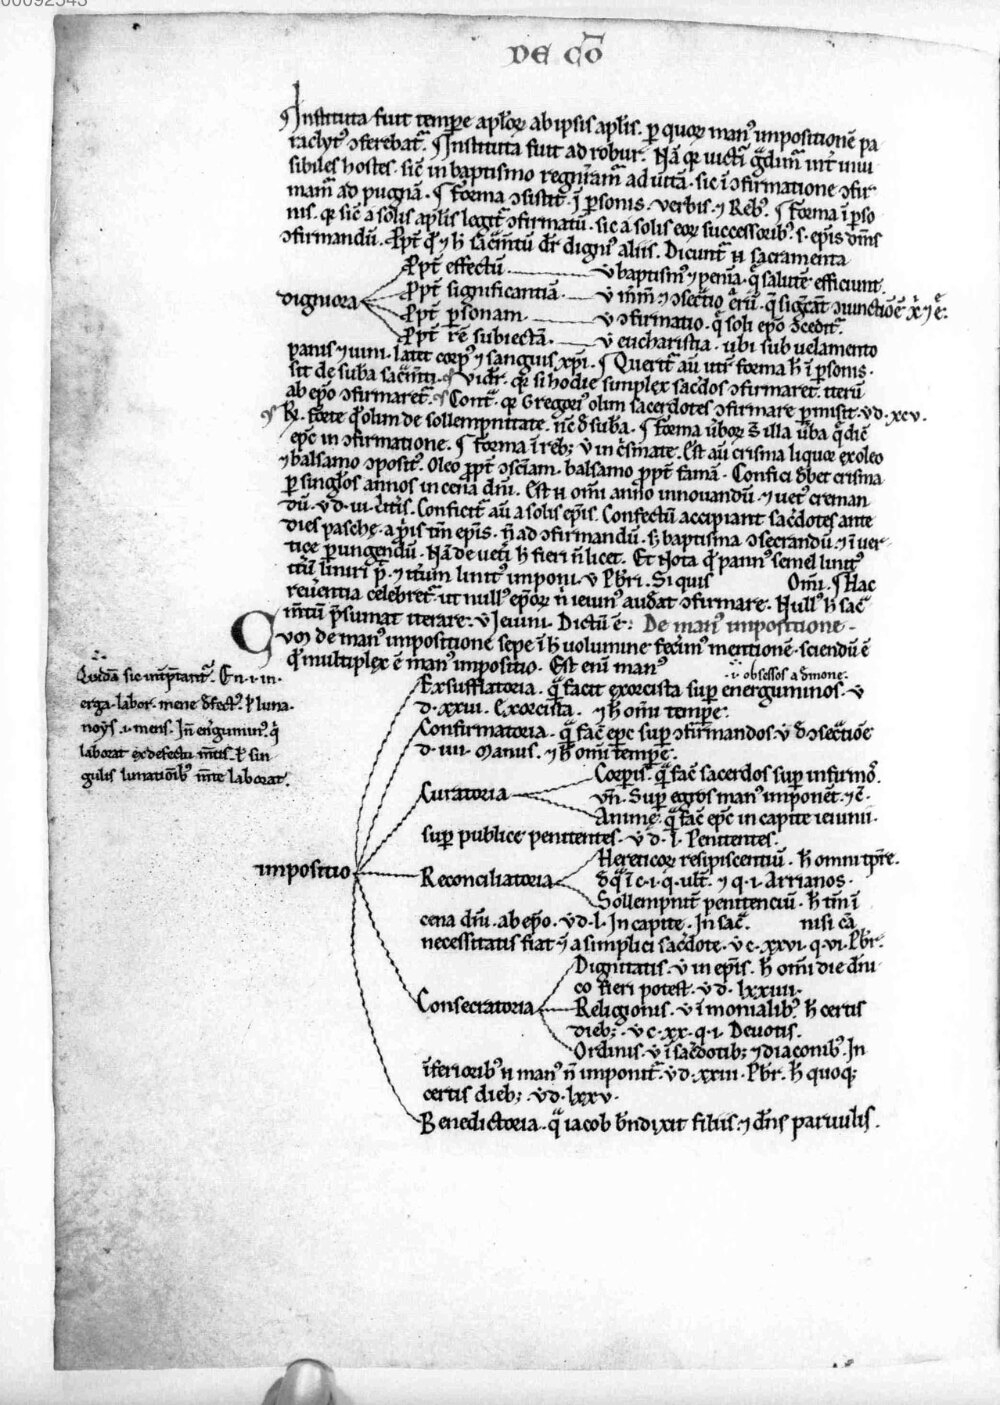 00092543
DE CO̅
¶ Instituta fuit tempore aplo̅ꝝ ab ipsis aplis. per quoꝝ man᷒ impositione̅ pa
raclyt᷒ ↄferebat᷑. ¶ Instituta fuit ad robur. Na̅ qꝛ uicti int̅ inui
sibiles hostes. sic̅ in baptismo ad uita̅. sic i̅ ↄfirmatione ↄfir
mam̅ ad pugna̅. ¶ Forma ↄsistit i̅ ꝑsonis. verbis. ⁊ Reb᷒. ¶ Forma i̅ ꝑso
nis. qꝛ sic̅ a solis aplis legit᷑ ↄfirmatu̅. sic a solis eoꝝ successorib᷒ .s. ep̅is
ↄfirmandu̅. Ꝓpt̅ qᷓ ⁊ h̅ sacm̅tu̅ dr̅ digni᷒ aliis. Dicunt᷑ n̅ sacramenta
digniora
Ꝓpt̅ effectu̅ v̅ baptism᷒ ⁊ penia̅. q̅ salute̅ efficiunt.
Ꝓpt̅ significantia̅. v̅ m̅rm̅
Ꝓpt̅ ꝑsonam. v̅ ↄfirmatio. q̅ soli ep̅o ↄcedit᷑.
Ꝓpt̅ re̅ subiecta̅. v̅ eucharistia. ubi sub uelamento
panis ⁊ uini. latit corp᷒ ⁊ sanguis xp̅i. ¶ Querit᷑ au̅ utr̅ forma h̅ i̅ ꝑsonis.
sit de suba̅ sacm̅ti. ¶ vidr̅. qꝛ si hodie simplex sac̅dos ↄfirmaret. iteru̅
ab ep̅o ↄfirmaret᷑. ¶ Cont̅. qꝛ Gregori᷒ olim sacerdotes ↄfirmare ꝑmisit. vd. xcv.
¶ R̅. forte q̅ olim de sollempnitate. n̅c d̅ suba̅. ¶ Forma uboꝝ illa u̅ba q̅ dic̅
ep̅c in ↄfirmatione. ¶ Forma i̅ reb; v̅ in c̅smate. Est au̅ crisma liquor ex oleo
⁊ balsamo ↄposit᷒. Oleo ꝓpt̅ ↄscia̅m. balsamo ꝓpt̅ fama̅. Confici d̅bet crisma
ꝑ singlos annos in cena dni̅. Est n̅ om̅i anno innouandu̅. ⁊ uet᷒ creman
du̅. v. d. iii. l̅ris. Conficit᷑ au̅ a solis ep̅is. Confectu̅ accipiant sac̅dotes ante
dies pasche. a p̅is tm̅ ep̅is. n̅ ad ↄfirmandu̅. s; baptisma ↄsecrandu̅. ⁊ i̅ uer
tice ꝑungendu̅. Na̅ de uet̅i h̅ fieri n̅ licet. Et Nota q̅ pann᷒ semel linit᷒
it̅u̅ liniri p̅. ⁊ it̅um linit᷒ imponi. v̅ Pbr̅i. Si quis Om̅i. ¶ Hac
reu̅entia celebret᷑. ut null᷒ ep̅oꝝ n̅ ieiun᷒ audat ↄfirmare. Null᷒ h̅ sac̅
m̅tu̅ p̅sumat iterare. v̅ Ieiuni. Dictu̅ e̅. De man᷒ impositione.
Quon̅ de man᷒ impositione sepe i̅ h̅ uolumine fecim᷒ mentione̅. sciendu̅ e̅
q̅ multiplex e̅ man᷒ impositio. Est eni̅ man᷒
.i. obsessos a d̅mone.
Quida̅ sic int̅p̅tant᷑. En .i. in.
erga. labor. mene d̅fect᷒. ł luna.
noys .i. mens. In̅ en̅gumin᷒. q̅
laborat ex defectu m̅tis. ł sin
gulis lunatio̅ib᷒ m̅te laborat.
impositio
Exsufflatoria. q̅ facit exorcista suꝑ energuminos. v̅
d. xxiii. Exorcista. ⁊ h̅ om̅i tempꝛe.
Confirmatoria. q̅ fac̅ ep̅c suꝑ ↄfirmandos. v̅ d̅ ↄsectio̅e
d. iiii. Manus. ⁊ h̅ om̅i tempꝛe.
Curatoria
Corpis. q̅ fac̅ sacerdos suꝑ infirmo̅.
vn̅. Suꝑ egros man᷒ impone̅t. ⁊c̅.
Anime. q̅ fac̅ ep̅c in capite ieiunii.
suꝑ publice penitentes. v̅ d. l. Penitentes.
Reconciliatoria
Hereticoꝝ resipiscentiu̅. h̅ omni tp̅re.
d̅ q̅ i̅ c. i. q. ult̅. ⁊ q. i. Arrianos.
Sollempnit̅ penitenciu̅. h̅ tm̅ i̅
cena dni̅. ab ep̅o. vd. l. In capite. In sac̅. nisi ca̅
necessitatis fiat ⁊ a simplici sac̅dote. v̅ c. xxvi. q. vi. Pbr̅.
Consecratoria
Dignitatis. v̅ in ep̅is. h̅ om̅i die dni̅
co fieri potest. v̅ d. lxxiiii.
Religionis. v̅ i̅ monialib᷒. h̅ certis
dieb;. v̅ c. xx. q. i. Deuotis.
Ordinis. v̅ i̅ sac̅dotib; ⁊ diaconib᷒. In
i̅feriorib᷒ n̅ man᷒ n̅ imponit᷑. vd. xxiii. Pbr̅. h̅ quoq;
certis dieb;. vd. lxxv.
Benedictoria. q̅ iacob bn̅dixit filiis. ⁊ dn̅s paruulis.